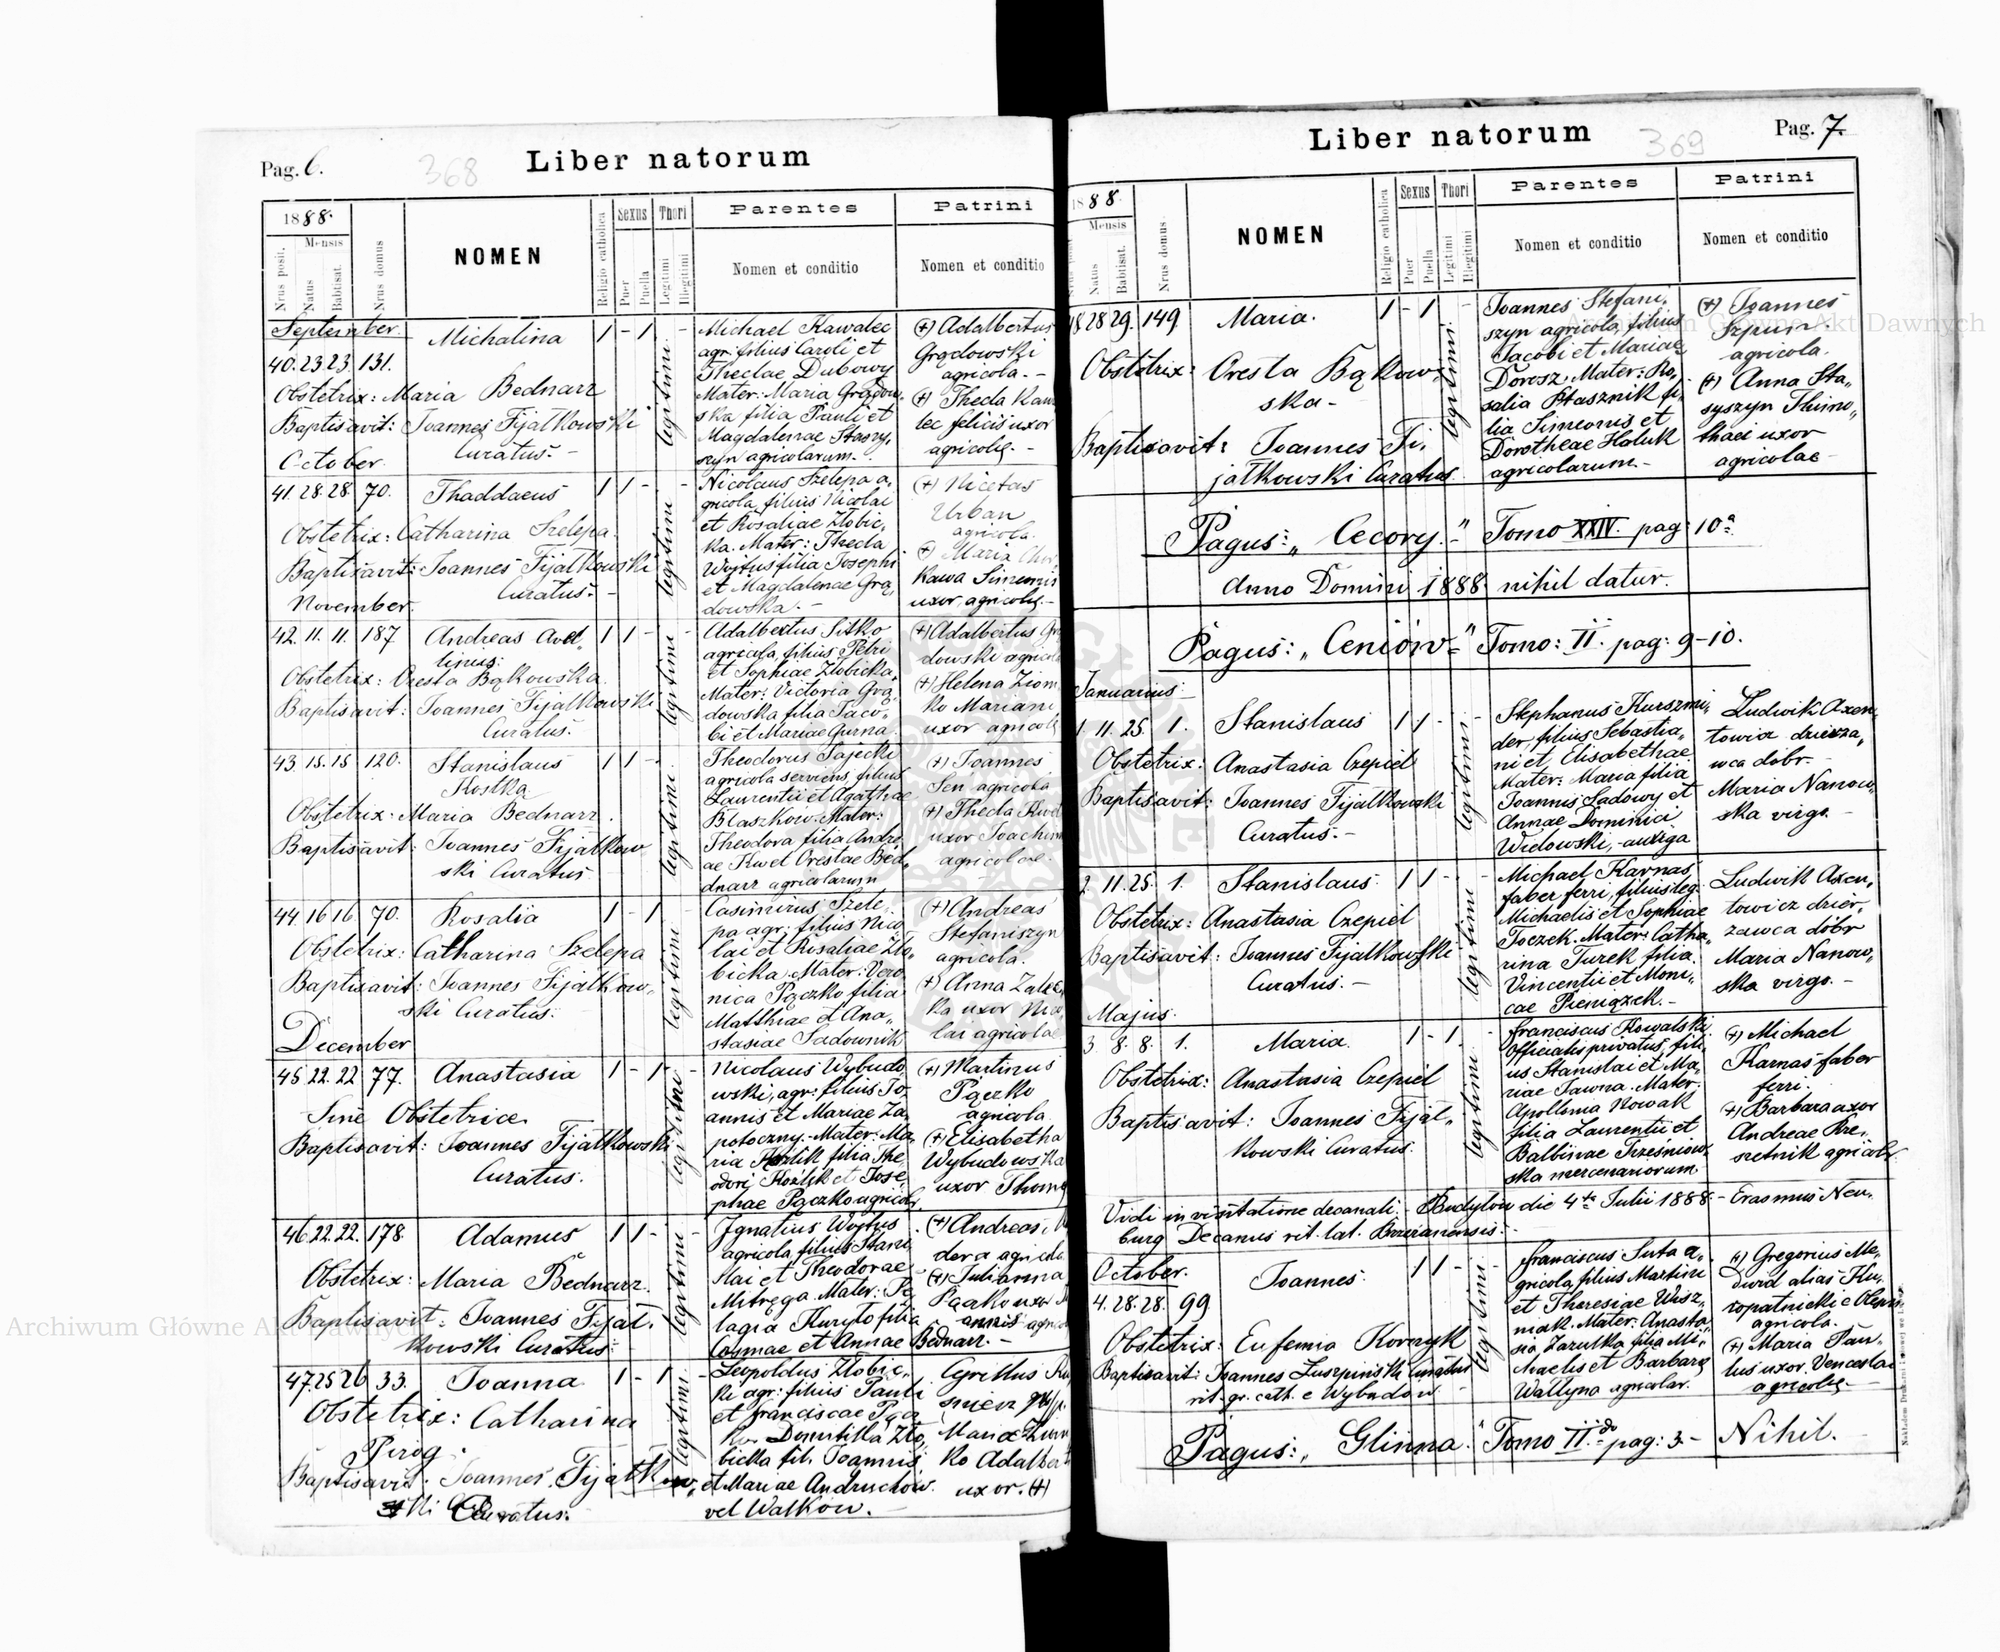 Pag. 6.
368
Liber natorum
1888.
Mensis
Nrus posit.
Natus
Babtisat.
Nrus domus
NOMEN
Religio catholica
Sexus
Puer
Puella
Thori
Legitimi
Illegitimi
Parentes
Nomen et conditio
Patrini
Nomen et conditio
September.
40. 23. 23. 131. Michalina 1 - 1 -
legitimi
Obstetrix: Maria Bednarz
Baptisavit: Joannes Fijałkowski
Curatus. -
Michael Kawalec
agr. filius Caroli et
Theclae Dubowy
Mater: Maria Grądow-
ska filia Pauli et
Magdalenae Staszy-
szyn agricolarum. -
(+) Adalbertus
Grądowski
agricola. -
(+) Thecla Kawa
lec felicis uxor
agricolę. -
October.
41. 28. 28. 70. Thaddaeus 1 1 - -
legitimi
Obstetrix: Catharina Szelepa.
Baptisavit: Joannes Fijałkowski
Curatus. -
Nicolaus Szelepa a-
gricola, filius Nicolai
et Rosaliae Złobic-
ka. Mater: Thecla
Wojtus filia Josephi
et Magdalenae Grą-
dowska. -
(+) Nicetas
Urban
agricola.
(+) Maria
kawa Simeonis
uxor agricolę. -
November.
42. 11. 11. 187 Andreas Avel-
linus.
1 1 -
legitimi
Obstetrix: Oresta Bąkowska.
Baptisavit: Joannes Fijałkowski
Curatus.
Adalbertus Sitko
agricola filius Petri
et Sophiae Złobicka.
Mater: Victoria Grą-
dowska filia Jaco-
bi et Mariae Gurna.
(+) Adalbertus Grą
dowski agricola
(+) Helena Ziom
ko Mariani
uxor agricolę
43. 15. 15 120. Stanislaus
Kostka
1 1 -
legitimi
Obstetrix: Maria Bednarz.
Baptisavit: Joannes Fijałkow
ski Curatus
Theodorus Sajecki
agricola serviens, filius
Laurentii et Agathae
Błaszkow. Mater:
Theodora filia Andre-
ae Kwel Orestae Bed-
dnarz agricolarum
(+) Joannes
Seń agricola
(+) Thecla
uxor Joachim
agricolae. -
44. 16 16. 70. Rosalia 1 - 1 -
legitimi
Obstetrix: Catharina Szelepa
Baptisavit: Joannes Fijałkow-
ski Curatus.
Casimirus Szele-
pa agr. filius Nico
lai et Rosaliae Zło-
bicka. Mater: Vero
nica Pączko filia
Matthiae et Ana-
stasiae Sadownik
(+) Andreas
Stefaniszyn
agricola.
(+) Anna Zalec
ka uxor Nico
lai agricolae
December
45. 22. 22 77. Anastasia 1 - 1 -
legitimi
Sine Obstetrice
Baptisavit: Joannes Fijałkowski
Curatus.
Nicolaus Wybudo
wski, agr. filius Jo-
annis et Mariae Za-
potoczny. - Mater: Ma-
ria Kozlik filia The-
odori Kozlik et Jose-
phae Pączko agricolar.
(+) Martinus
Pączko
agricola
(+) Elisabetha
Wybudowska
uxor Thomę
46. 22. 22. 178. Adamus 1 1 -
legitimi
Obstetrix: Maria Bednarz.
Baptisavit: Joannes Fijał-
kowski Curatus.
Ignatius Wojtus
agricola filius Stani
slai et Theodorae
Mitręga. Mater: Pe
lagia Kuryło filia
Cosmae et Annae Bednarz. -
(+) Andreas
dera agricola
(+) Julianna
Pączko uxor
annis agricol
47. 25 26 33. Joanna 1 - 1 -
legitimi
Obstetrix: Catharina
Pirog.
Baptisavit: Joannes Fijałkow-
ski Curatus.
Leopoldus Złobic-
ki agr. filius Pauli
et Franciscae Pącz
ko. Domitilla Zło-
bicka fil. Joannis
et Mariae Andruchów.
vel Walków. -
Cyrillus
Maria
ko Adalberti
uxor. (+)
Liber natorum
369
Pag. 7.
1888.
Mensis
Natus
Babtisat.
Nrus domus
NOMEN
Religio catholica
Sexus
Puer
Puella
Thori
Legitimi
Illegitimi
Parentes
Nomen et conditio
Patrini
Nomen et conditio
48 28 29. 149. Maria. 1 - 1 -
legitimi
Obstetrix: Oresta Bąkow-
ska -
Baptisavit: Joannes Fi-
jałkowski Curatus.
Joannes Stefani-
szyn agricola, filius
Jacobi et Mariae
Dorosz. Mater: Ro-
salia Ptasznik fi-
lia Simeonis et
Dorotheae Haluk
agricolarum. -
(+) Joannes
agricola.
(+) Anna Sta-
syszyn Thimo-
thaei uxor
agricolae -
Pagus: „Cecory." - Tomo XXIV. pag: 10ª
Anno Domini 1888. nihil datur.
Pagus: „Ceniów" - Tomo: II. pag: 9-10.
Januarius.
1. 11. 25. 1. Stanislaus 1 1 - -
legitimi
Obstetrix: Anastasia Czepiel
Baptisavit: Joannes Fijałkowski
Curatus. -
Stephanus Kurszni-
der, filius Sebastia-
ni et Elisabethae.
Mater: Maria filia
Joannis Sadowy et
Annae Dominici
Widowski, - auriga
Ludwik Axen-
towicz dzierza-
wca dóbr. -
Maria Nanow-
ska virgo. -
2. 11. 25. 1. Stanislaus. 1 1 - -
legitimi
Obstetrix: Anastasia Czepiel
Baptisavit: Joannes Fijałkowski
Curatus. -
Michael Karnas,
faber ferri, filius leg.
Michaelis et Sophiae
Toczek. Mater: Catha-
rina Turek filia
Vincentii et Moni-
cae Pieniązek. -
Ludwik Axen-
towicz dzier-
żawca dóbr
Maria Nanow-
ska virgo. -
Majus.
3. 8. 8. 1. Maria. 1 - 1 -
legitimi
Obstetrix: Anastasia Czepiel
Baptisavit: Joannes Fijał-
kowski Curatus.
Franciscus Kowalski
officialis privatus, fili-
us Stanislai et Ma-
riae Jawna. Mater:
Apollonia Nowak
filia Laurentii et
Balbinae Trześniow-
ska mercenariorum.
(+) Michael
Karnas faber
ferri.
(+) Barbara uxor
Andreae Kre-
szetnik agricolę
Vidi in visitatione decanali. - Budyłów die 4ta Julii 1888. - Erasmus Neu-
burg Decanus rit. lat. Brzezanensis. -
October.
4. 28. 28. 99. Joannes. 1 1 - -
legitimi
Obstetrix: Eufemia Kornyk
Baptisavit: Joannes Łuszpiński Curatus
rit. gr. cath. e Wybudów. -
Franciscus Suta a-
gricola, filius Martini
et Theresiae Wisz-
niak. Mater: Anasta-
sia Zarutka filia Mi-
chaelis et Barbarę
Wałłyna agricolar.
(+) Gregorius Me-
dwid alias Ku-
ropatnicki e Olepin
agricola.
(+) Maria Pau-
lus uxor Venceslai
agricolę. -
Pagus: „Glinna." Tomo II.do pag: 3. - Nihil.
Archiwum Główne Akt Dawnych
Archiwum Główne Akt Dawnych